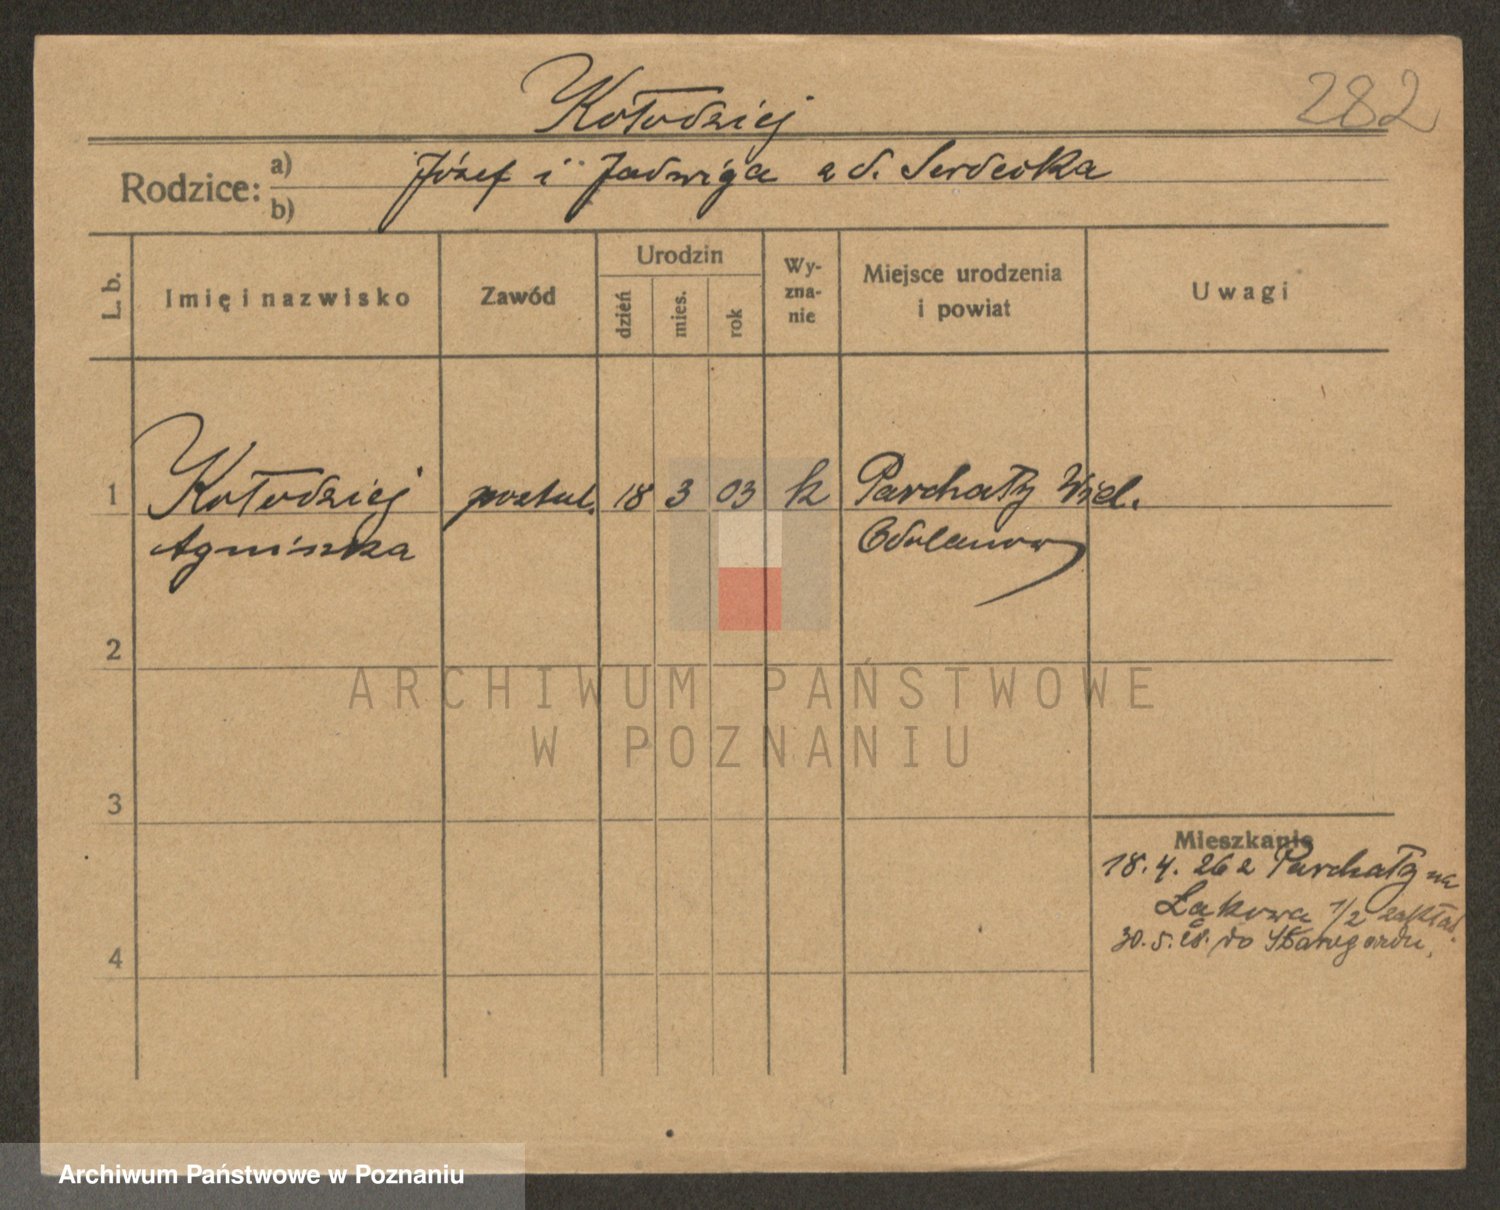 282
Kołodziej
Rodzice: a) Józef i Jadwiga z d. Serdecka
b)
L. b. Imię i nazwisko Zawód Urodzin dzień mies. rok Wy-zna-nie Miejsce urodzenia i powiat Uwagi
1 Kołodziej postul. 18 3 03 k Parchały Wiel.
Agnieszka Odolanow
2
3
4
Mieszkanie
18. 4. 26 z Parchały na
Łąkowa 1/2 zakład.
30. 5. 28. do Starogardu.
ARCHIWUM PAŃSTWOWE
W POZNANIU
Archiwum Państwowe w Poznaniu